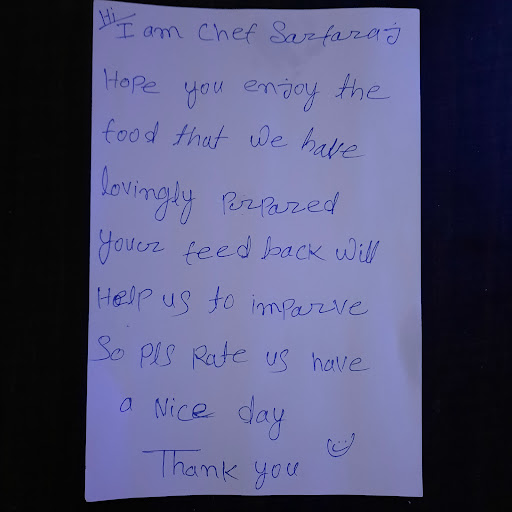 Hi
I am Chef Sarfaraj
Hope you enjoy the
food that we have
lovingly Purpared
Youer feed back will
Help us to imparve
So Pls Rate us have
a Nice day
Thank you